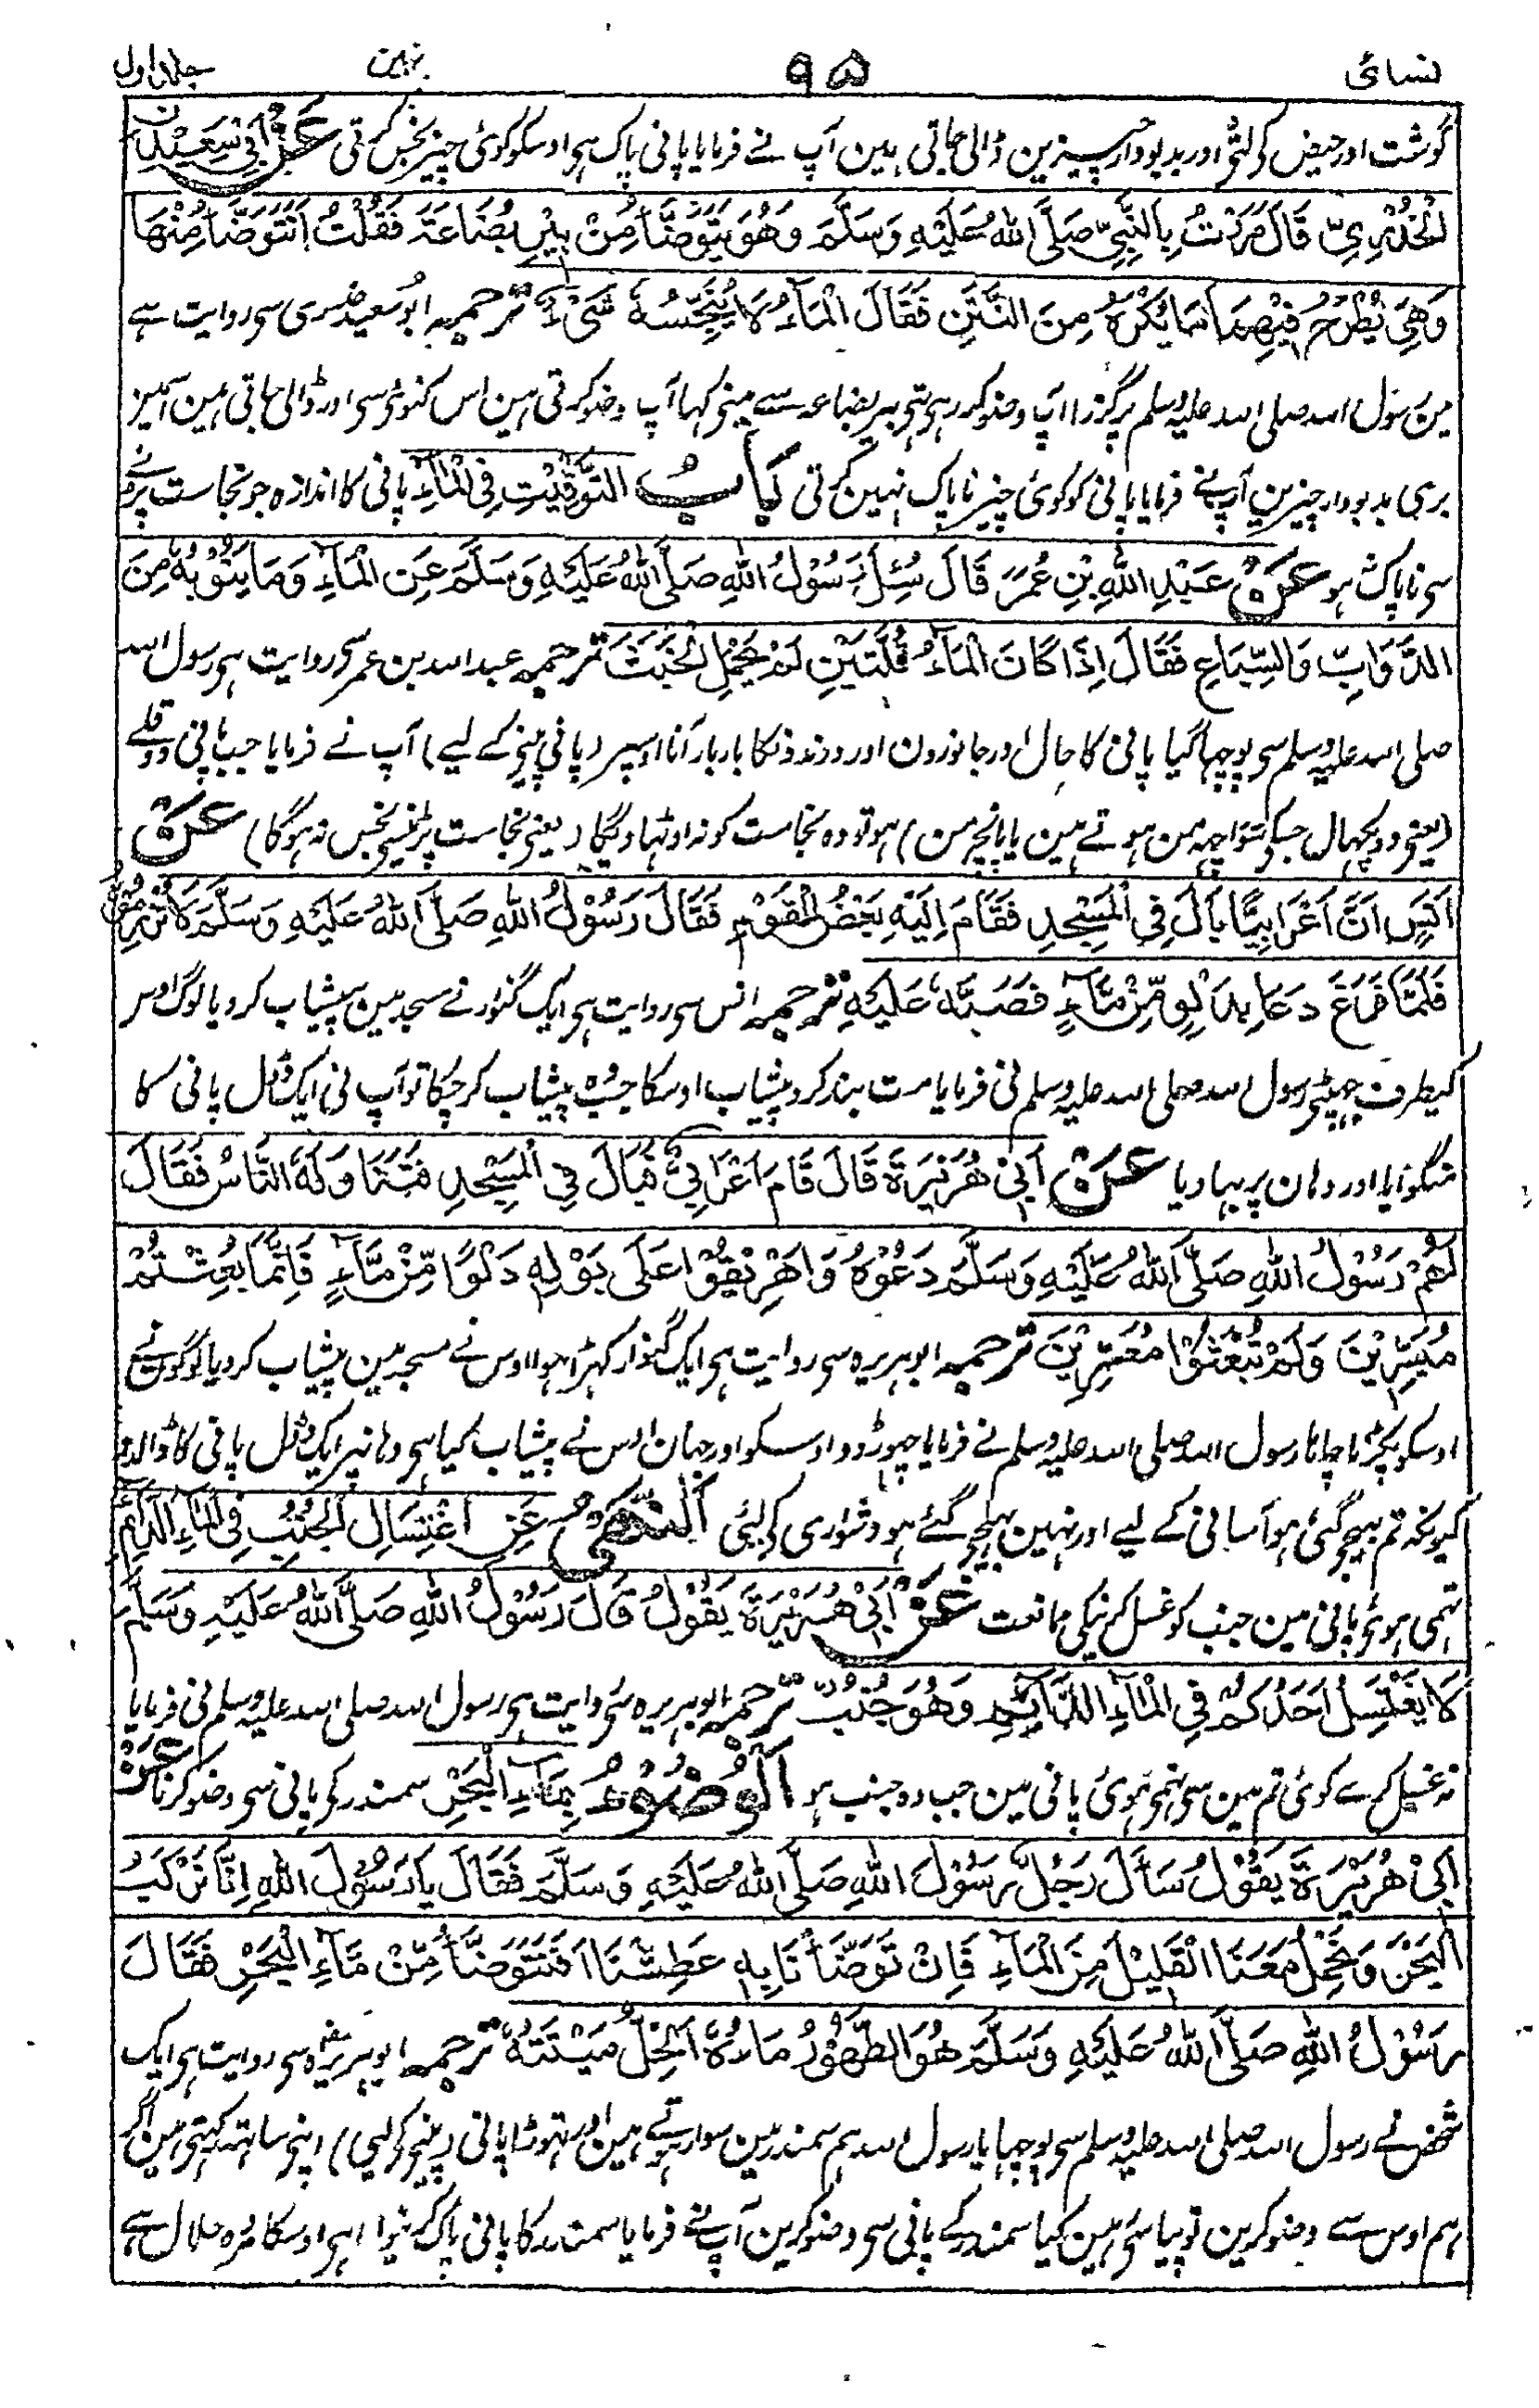 نسائی ۹۵ نہین جلد اول
گوشت اور حیض کے لتّے اور بدبودار چیزین ڈالی جاتی ہین آپ نے فرمایا پانی پاک ہی اوسکو کوئی چیز نجس کرتی عَنْ اَبِیْ سَعِیْدِنِ
الْخُدْرِيِّ قَالَ مَرَرْتُ بِالنَّبِيِّ صَلَّى اللهُ عَلَيْهِ وَسَلَّمَ وَهُوَ يَتَوَضَّأُ مِنْ بِيْرِ بُضَاعَةَ فَقُلْتُ اَتَتَوَضَّأُ مِنْهَا
وَهِيَ يُطْرَحُ فِيْهَا مَا يُكْرَهُ مِنَ النَّتَنِ فَقَالَ الْمَاءُ لَا يُنَجِّسُهٗ شَیْءٌ ترجمہ ابو سعید خدری سی روایت ہے
مین رسول اللہ صلی اللہ علیہ وسلم پر گزرا آپ وضو کر رہی تہی بیر بضاعہ سے مینی کہا آپ وضو کرتی ہین اس کنوئی سی اور ڈالی جاتی ہین اسمین
بری بدبودار چیزین آپنے فرمایا پانی کو کوئی چیز ناپاک نہین کرتی بَابُ التَّوْقِيْتِ فِي الْمَآءِ پانی کا اندازہ جو نجاست پڑنے
سی ناپاک نہو عَنْ عَبْدِ اللهِ بْنِ عُمَرَ قَالَ سُئِلَ رَسُوْلُ اللهِ صَلَّى اللهُ عَلَيْهِ وَسَلَّمَ عَنِ الْمَآءِ وَمَا يَنُوْبُهٗ مِنَ
الدَّوَابِّ وَالسِّبَاعِ فَقَالَ اِذَا كَانَ الْمَآءُ قُلَّتَيْنِ لَمْ يَحْمِلِ الْخَبَثَ ترجمہ عبد اللہ بن عمر سی روایت ہی رسول اللہ
صلی اللہ علیہ وسلم سی پوچہا گیا پانی کا حال اور جانورون اور درندونکا بار بار آنا اوسپر (پانی پینی کے لیے) آپ نے فرمایا جب پانی دو قلے
(یعنی دو پکہال جسکے سوا چہہ من ہوتے ہین یا پانچ من) ہو تو وہ نجاست کو نہ اوٹہاویگا (یعنی نجاست پڑنیسی نجس نہ ہوگا) عَنْ
اَنَسٍ اَنَّ اَعْرَابِيًّا بَالَ فِي الْمَسْجِدِ فَقَامَ اِلَيْهِ بَعْضُ الْقَوْمِ فَقَالَ رَسُوْلُ اللهِ صَلَّى اللهُ عَلَيْهِ وَسَلَّمَ لَا تُزْرِمُوْهُ
فَلَمَّا فَرَغَ دَعَا بِدَلْوٍ مِّنْ مَّآءٍ فَصَبَّهٗ عَلَيْهِ ترجمہ انس سی روایت ہی ایک گنوار نے مسجد مین پیشاب کر دیا لوگ اوس
کیطرف جہپٹے رسول اللہ صلی اللہ علیہ وسلم نی فرمایا مت بند کرو پیشاب اوسکا جب پیشاب کر چکا تو آپ نی ایک ڈول پانی کا
منگوایا اور وہان پر بہا دیا عَنْ اَبِيْ هُرَيْرَةَ قَالَ قَامَ اَعْرَابِيٌّ فَبَالَ فِي الْمَسْجِدِ فَتَنَاوَلَهُ النَّاسُ فَقَالَ
لَهُمْ رَسُوْلُ اللهِ صَلَّى اللهُ عَلَيْهِ وَسَلَّمَ دَعُوْهُ وَاَهْرِيْقُوْا عَلٰى بَوْلِهٖ دَلْوًا مِّنْ مَّآءٍ فَاِنَّمَا بُعِثْتُمْ
مُيَسِّرِيْنَ وَلَمْ تُبْعَثُوْا مُعَسِّرِيْنَ ترجمہ ابو ہریرہ سی روایت ہی ایک گنوار کہڑا ہوا اوس نے مسجد مین پیشاب کر دیا لوگونے
اوسکو پکڑنا چاہا رسول اللہ صلی اللہ علیہ وسلم نے فرمایا چہوڑ دو اوسکو اور جہان اوس نے پیشاب کیا ہی وہانپر ایک ڈول پانی کا ڈالدو
کیونکہ تم بہیجے گئی ہو آسانی کے لیے اور نہین بہیجے گئے ہو دشواری کے لئی اَلنَّهْيُ عَنِ اغْتِسَالِ الْجُنُبِ فِي الْمَآءِ الدَّآئِمِ
تہمی ہوئے پانی مین جنب کو غسل کرنیکی ممانعت عَنْ اَبِيْ هُرَيْرَةَ يَقُوْلُ قَالَ رَسُوْلُ اللهِ صَلَّى اللهُ عَلَيْهِ وَسَلَّمَ
لَا يَغْتَسِلْ اَحَدُكُمْ فِي الْمَآءِ الدَّآئِمِ وَهُوَ جُنُبٌ ترجمہ ابو ہریرہ سی روایت ہی رسول اللہ صلی اللہ علیہ وسلم نی فرمایا
نہ غسل کرے کوئی تم مین سی تہمی ہوئی پانی مین جب وہ جنب ہو اَلْوُضُوْءُ بِمَآءِ الْبَحْرِ سمندر کے پانی سی وضو کرنا عَنْ
اَبِيْ هُرَيْرَةَ يَقُوْلُ سَاَلَ رَجُلٌ رَسُوْلَ اللهِ صَلَّى اللهُ عَلَيْهِ وَسَلَّمَ فَقَالَ يَا رَسُوْلَ اللهِ اِنَّا نَرْكَبُ
الْبَحْرَ وَنَحْمِلُ مَعَنَا الْقَلِيْلَ مِنَ الْمَآءِ فَاِنْ تَوَضَّأْنَا بِهٖ عَطِشْنَا اَفَنَتَوَضَّأُ مِنْ مَّآءِ الْبَحْرِ فَقَالَ
رَسُوْلُ اللهِ صَلَّى اللهُ عَلَيْهِ وَسَلَّمَ هُوَ الطَّهُوْرُ مَاؤُهٗ الْحِلُّ مَيْتَتُهٗ ترجمہ ابو ہریرہ سی روایت ہی ایک
شخص نے رسول اللہ صلی اللہ علیہ وسلم سی پوچہا یا رسول اللہ ہم سمندر مین سوار ہوتے ہین اور تہوڑا پانی (پینے کے لیی) اپنی ساتہہ رکہتی ہین اگر
ہم اوس سے وضو کرین تو پیاسی رہین کیا سمندر کے پانی سی وضو کرین آپ نے فرمایا سمندر کا پانی پاک کرنیوالا ہی اوسکا مردہ حلال ہے